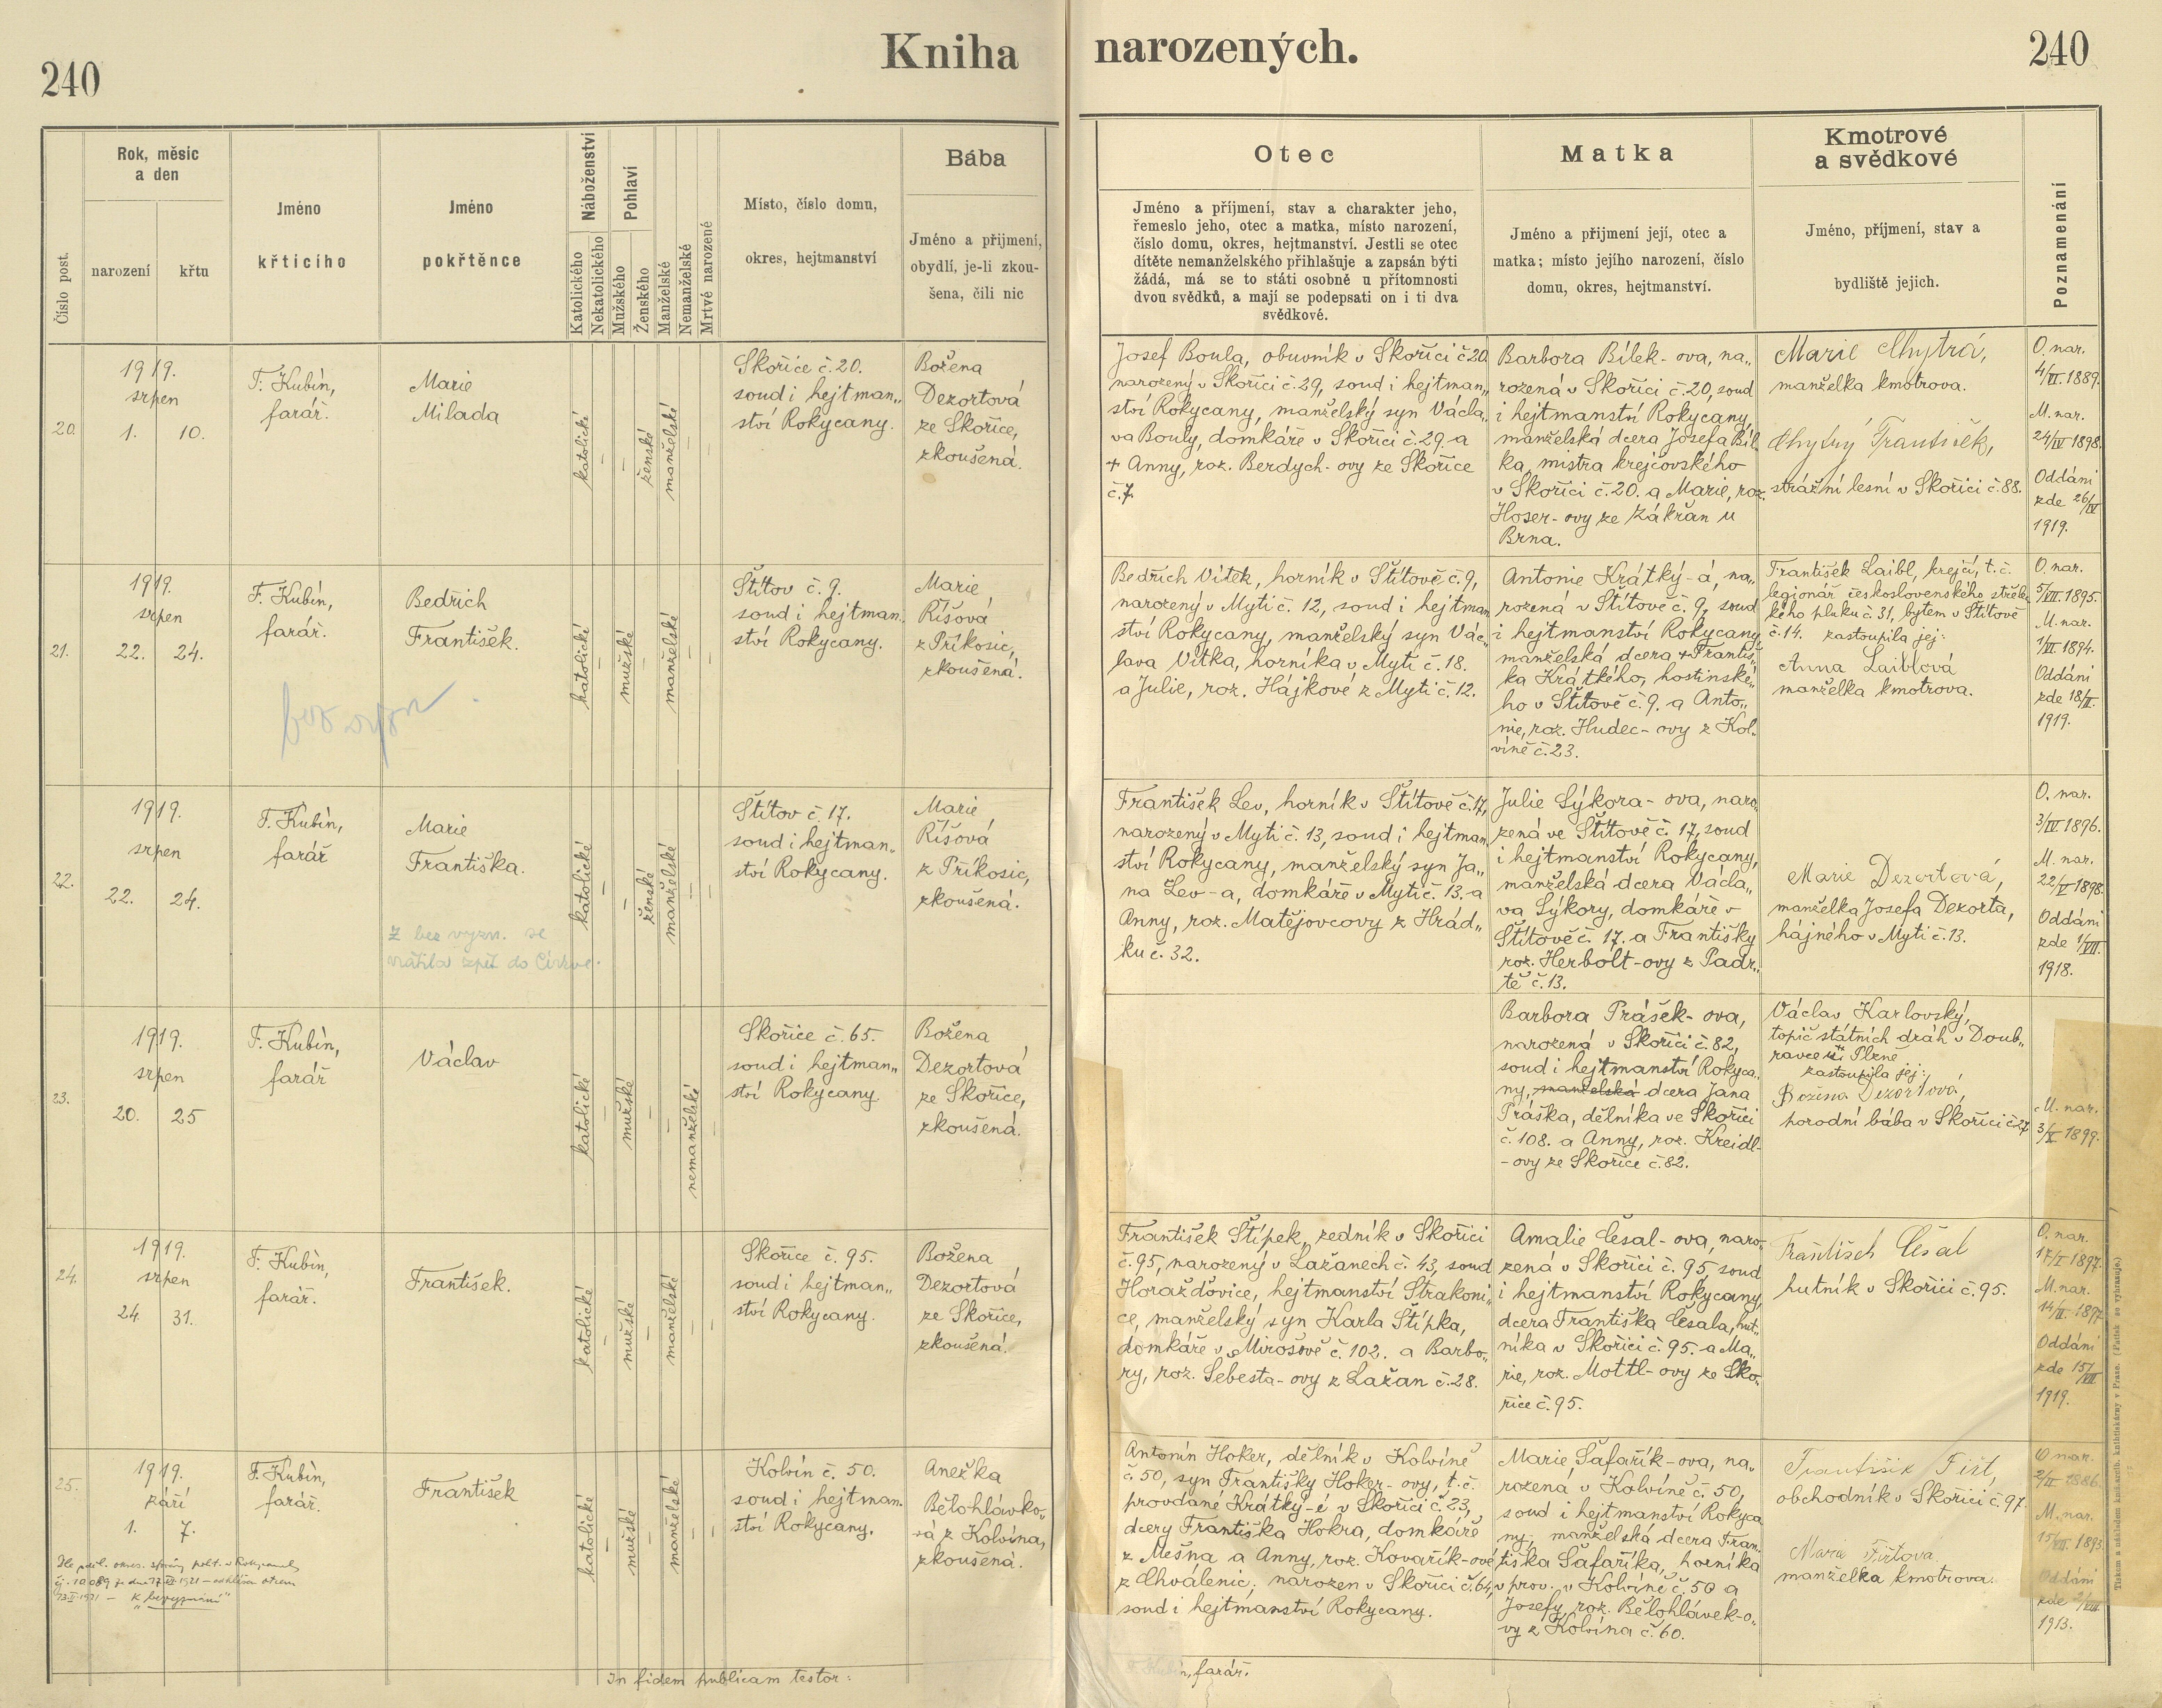 240
Kniha narozených.
240
Číslo post.
Rok, měsíc
a den
narození
křtu
Jméno
křtícího
Jméno
pokřtěnce
Náboženství
Katolického
Nekatolického
Pohlaví
Mužského
Ženského
Manželské
Nemanželské
Mrtvě narozené
Místo, číslo domu,
okres, hejtmanství
Bába
Jméno a přijmení,
obydlí, je-li zkou-
šena, čili nic
Otec
Jméno a příjmení, stav a charakter jeho,
řemeslo jeho, otec a matka, místo narození,
číslo domu, okres, hejtmanství. Jestli se otec
dítěte nemanželského přihlašuje a zapsán býti
žádá, má se to státi osobně u přítomnosti
dvou svědků, a mají se podepsati on i ti dva
svědkové.
Matka
Jméno a přijmení její, otec a
matka; místo jejího narození, číslo
domu, okres, hejtmanství.
Kmotrové
a svědkové
Jméno, příjmení, stav a
bydliště jejich.
Poznamenání
20.
1919.
srpen
1. 10.
F. Kubín,
farář.
Marie
Milada
katolické
ženské
manželské
Skořice č. 20.
soud i hejtman„
ství Rokycany.
Božena
Dezortová
ze Skořice,
zkoušená.
Josef Boula, obuvník v Skořici č. 20
narozený v Skořici č. 29, soud i hejtman„
ství Rokycany, manželský syn Václa„
va Bouly, domkáře v Skořici č. 29 a
+ Anny, roz. Berdych-ovy ze Skořice
č. 7.
Barbora Bílek-ova, na„
rozená v Skořici č. 20, soud
i hejtmanství Rokycany,
manželská dcera Josefa Bíl„
ka, mistra krejčovského
v Skořici č. 20. a Marie, roz.
Hoser-ovy ze Zákřan u
Brna.
Marie Chytrá,
manželka kmotrova.
Chytrý František,
strážní lesní v Skořici č. 88.
O. nar.
4/VI. 1889.
M. nar.
24/IV 1898.
Oddáni
zde 26/IV
1919.
21.
1919.
srpen
22. 24.
F. Kubín,
farář.
Bedřich
František.
katolické
mužské
manželské
Štítov č. 9.
soud i hejtman„
ství Rokycany.
Marie
Říšová
z Příkosic,
zkoušená.
Bedřich Vítek, horník v Štítově č. 9,
narozený v Mytí č. 12, soud i hejtman
ství Rokycany, manželský syn Vác„
lava Vítka, horníka v Mytí č. 18.
a Julie, roz. Hájkové z Mytí č. 12.
Antonie Krátký-á, na„
rozená v Štítově č. 9, soud
i hejtmanství Rokycany
manželská dcera + Františ„
ka Krátkého, hostinské„
ho v Štítově č. 9. a Anto„
nie, roz. Hudec-ovy z Kol„
víně č. 23.
František Laibl, krejčí, t. č.
legionář československého střelec
kého pluku č. 31, bytem v Štítově
č. 14. zastoupila jej:
Anna Laiblová
manželka kmotrova.
O. nar.
5/VII. 1895.
M. nar.
1/VI. 1894.
Oddáni
zde 18/II.
1919.
22.
1919.
srpen
22. 24.
F. Kubín,
farář
Marie
Františka.
Z bez vyzn. se
vrátila zpět do Církve.
katolické
ženské
manželské
Štítov č. 17.
soud i hejtman„
ství Rokycany.
Marie
Říšová
z Příkosic,
zkoušená.
František Lev, horník v Štítově č. 17,
narozený v Mytí č. 13, soud i hejtman
ství Rokycany, manželský syn Ja„
na Lev-a, domkáře v Mytí č. 13. a
Anny, roz. Matějovcovy z Hrád„
ku č. 32.
Julie Sýkora-ova, naro„
zená ve Štítově č. 17, soud
i hejtmanství Rokycany,
manželská dcera Václa„
va Sýkory, domkáře v
Štítově č. 17. a Františky
roz. Herbolt-ovy z Padr„
tě č. 13.
Marie Dezortová,
manželka Josefa Dezorta,
hajného v Mytí č. 13.
O. nar.
3/IV 1896.
M. nar.
22/V 1898.
Oddáni
zde 1/VII.
1918.
23.
1919.
srpen
20. 25
F. Kubín,
farář
Václav
katolické
mužské
nemanželské
Skořice č. 65.
soud i hejtman„
ství Rokycany.
Božena
Dezortová
ze Skořice,
zkoušená.
Barbora Prášek-ova,
narozená v Skořici č. 82,
soud i hejtmanství Rokyca„
ny, manželská dcera Jana
Práška, dělníka ve Skořici
č. 108. a Anny, roz. Kreidl-
-ovy ze Skořice č. 82.
Václav Karlovský,
topič státních drah v Doub„
ravce u Plzně
zastoupila jej:
Božena Dezortová,
porodní bába v Skořici č. 27
M. nar.
3/X 1899.
24.
1919.
srpen
24. 31.
F. Kubín,
farář.
František.
katolické
mužské
manželské
Skořice č. 95.
soud i hejtman„
ství Rokycany.
Božena
Dezortová
ze Skořice,
zkoušená.
František Štípek, zedník v Skořici
č. 95, narozený v Lažanech č. 43, soud
Horažďovice, hejtmanství Strakoni„
ce, manželský syn Karla Štípka,
domkáře v Mirošově č. 102. a Barbo„
ry, roz. Šebesta-ovy z Lažan č. 28.
Amalie Česal-ova, naro„
zená v Skořici č. 95 soud
i hejtmanství Rokycany,
dcera Františka Česala, hut„
níka v Skořici č. 95. a Ma„
rie, roz. Mottl-ovy ze Sko„
řice č. 95.
František Česal
hutník v Skořici č. 95.
O. nar.
17/I 1897.
M. nar.
14/II. 1897.
Oddáni
zde 15/VII
1919.
25.
1919.
září
1. 7.
F. Kubín,
farář.
František
katolické
mužské
manželské
Kolvín č. 50.
soud i hejtman„
ství Rokycany.
Anežka
Bělohlávko„
vá z Kolvína,
zkoušená.
Antonín Hoker, dělník v Kolvíně
č. 50, syn Františky Hoker-ovy, t. č.
provdané Krátký-é v Skořici č. 23,
dcery Františka Hokra, domkáře
z Mešna a Anny, roz. Kovařík-ové
z Chválenic; narozen v Skořici č. 64,
soud i hejtmanství Rokycany.
Marie Šafařík-ova, na„
rozená v Kolvíně č. 50,
soud i hejtmanství Rokyca
ny, manželská dcera Fran„
tiška Šafaříka, horníka
v prov. v Kolvíně č. 50 a
Josefy, roz. Bělohlávek-o„
vy z Kolvína č. 60.
František Fišt,
obchodník v Skořici č. 97.
Marie Fištova
manželka kmotrova.
O nar.
2/II 1886.
M. nar.
15/VII. 1893.
Oddáni
zde 2/VIII
1913.
Dle sděl. okres. správy polit. v Rokycanech
K "bezvyznání"
In fidem publicam testor:
F. Kubín, farář.
Tiskem a nákladem knihtiskárny v Praze. (Patisk se vyhrazuje.)